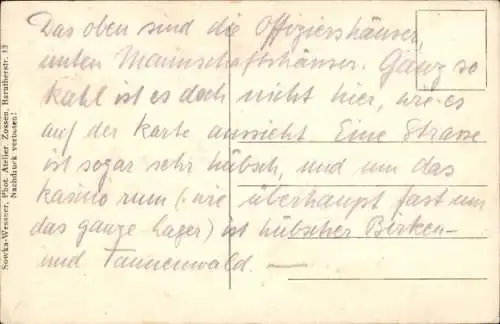 Das oben sind die Offiziershäuser,
unten Mannschaftshäuser. Ganz so
kahl ist es doch nicht hier, wie es
auf der Karte aussieht. Eine Strasse
ist sogar sehr hübsch, und um das
Kasino rum (wie überhaupt fast um
das ganze Lager) ist hübscher Birken-
und Tannenwald. —
Sowka-Wessner, Phot. Atelier, Zossen, Barutherstr. 13
Nachdruck verboten!